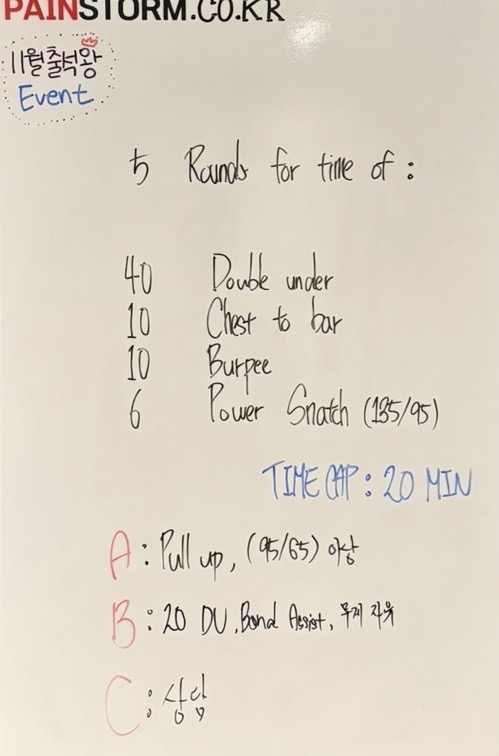 PAINSTORM.CO.KR
11월 출석왕
Event
5 Rounds for time of :
40 Double under
10 Chest to bar
10 Burpee
6 Power Snatch (135/95)
TIME CAP : 20 MIN
A : Pull up, (95/65) 이상
B : 20 DU, Band Assist, 무게 자유
C : 상담